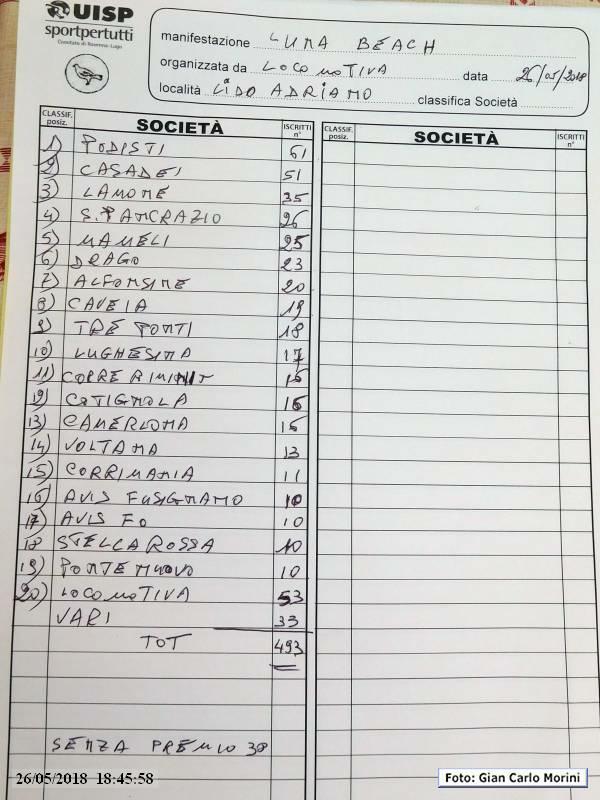 UISP
sportpertutti
Comitato di Ravenna-Lugo
manifestazione LUNA BEACH
organizzata da LOCOMOTIVA data 26/05/2018
località LIDO ADRIANO classifica Società
CLASSIF. posiz. SOCIETÀ ISCRITTI n° CLASSIF. posiz. SOCIETÀ ISCRITTI n°
1) PODISTI 61
2) CASADEI 51
3) LAMONE 35
4) S. PANCRAZIO 26
5) MAMELI 25
6) DRAGO 23
7) ALFONSINE 20
8) CAVEJA 19
9 TRE PONTI 18
10) LUGHESINA 17
11) CORRE RIMINI 16
12) COTIGNOLA 16
13) CAMERLONA 16
14) VOLTANA 13
15) CORRIMANIA 11
16) AVIS FUSIGNANO 10
17) AVIS FO 10
18 STELLA ROSSA 10
19) PONTE NUOVO 10
20) LOCOMOTIVA 53
VARI 33
TOT 493
SENZA PREMIO 38
26/05/2018 18:45:58
Foto: Gian Carlo Morini